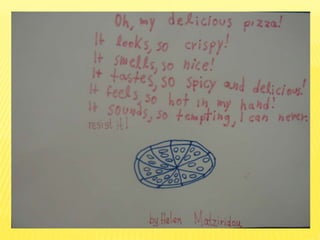 Oh, my delicious pizza!
It looks, so crispy!
It smells, so nice!
It tastes, so spicy and delicious!
It feels, so hot in my hand!
It sounds, so tempting, I can never
resist it!
by Helen Matziridou